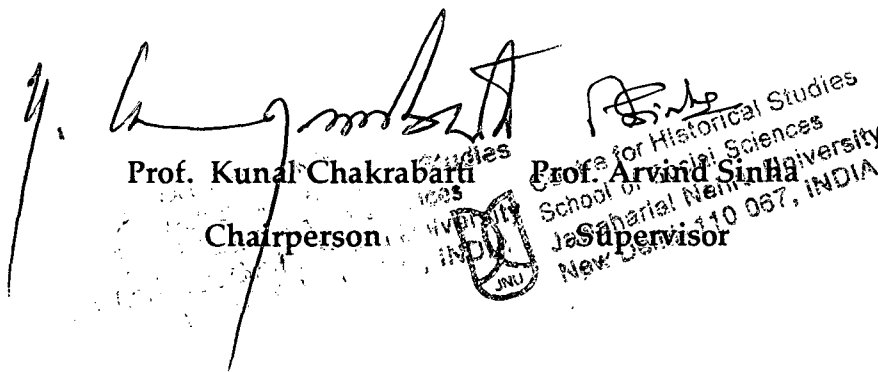 Prof. Kunal Chakrabarti
Chairperson
Prof. Arvind Sinha
Supervisor
Centre for Historical Studies
School of Social Sciences
Jawaharlal Nehru University
New Delhi 110 067, INDIA
JNU